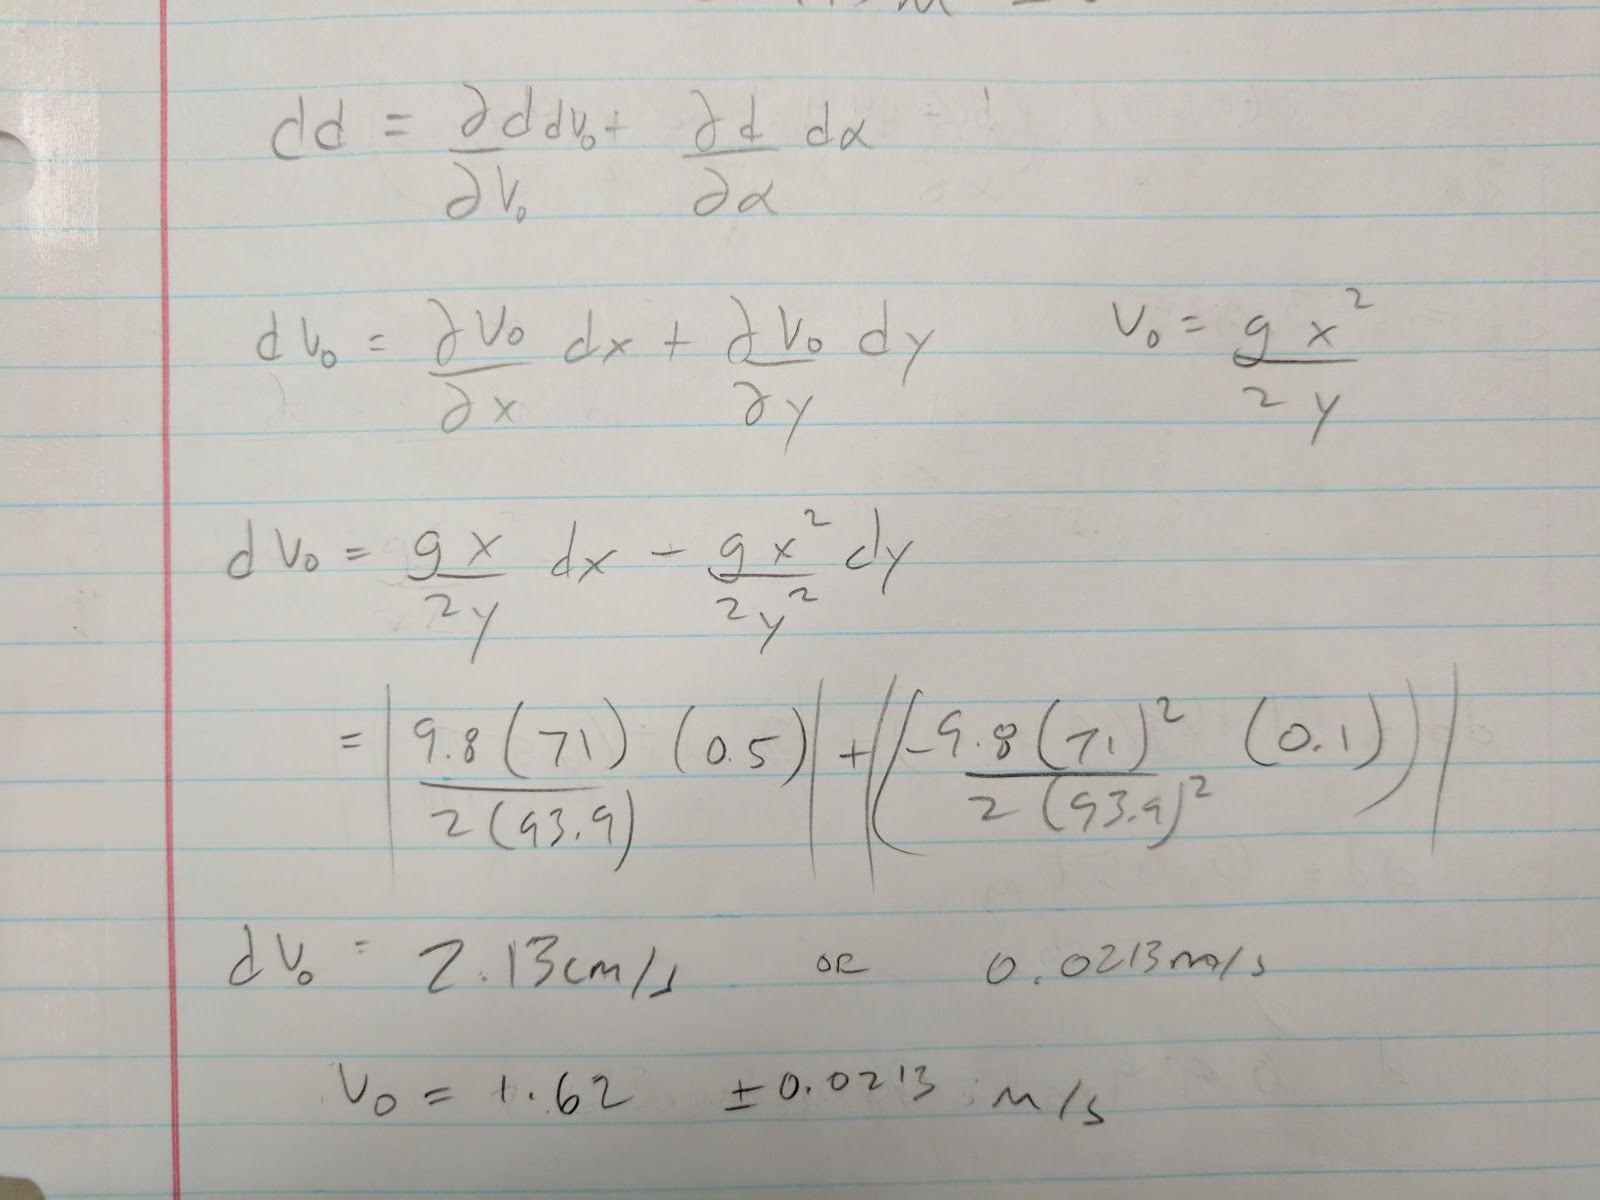 dd = ∂d/∂V₀ dV₀ + ∂d/∂α dα
dV₀ = ∂V₀/∂x dx + ∂V₀/∂y dy    V₀ = gx²/2y
dV₀ = gx/2y dx − gx²/2y² dy
= |9.8(71)/2(93.9) (0.5)| + |(−9.8(71)²/2(93.9)² (0.1))|
dV₀ = 2.13cm/s OR 0.0213m/s
V₀ = 1.62 ±0.0213 m/s